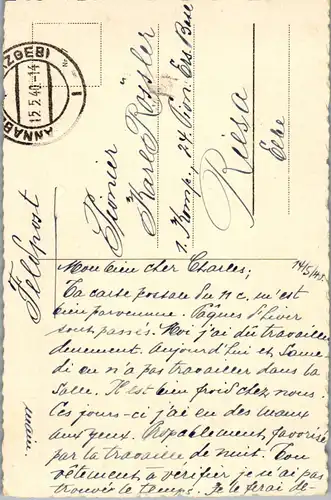 ANNAB (ERZGEB)
15.5.40.-14
Feldpost
Pionier
Karl Rössler
1. Komp., 24 Pion. Ers. Batl.
Riesa
Elbe
14/5/40.
Mon bien cher Charles;
Ta carte postale du 11 c. m'est
bien parvenue. Pâques d'hiver
sont passés. Moi j'ai dû travailler
durement. Aujourd'hui et Lundi
on n'a pas travailler dans la
Salle. Il est bien froid chez nous.
Ces jours-ci j'ai eu des maux
aux yeux. favorisé
par la travaille de nuit. Ton
vêtement à vérifier je n'ai pas
trouvée le temps. Je le ferai de-
main.